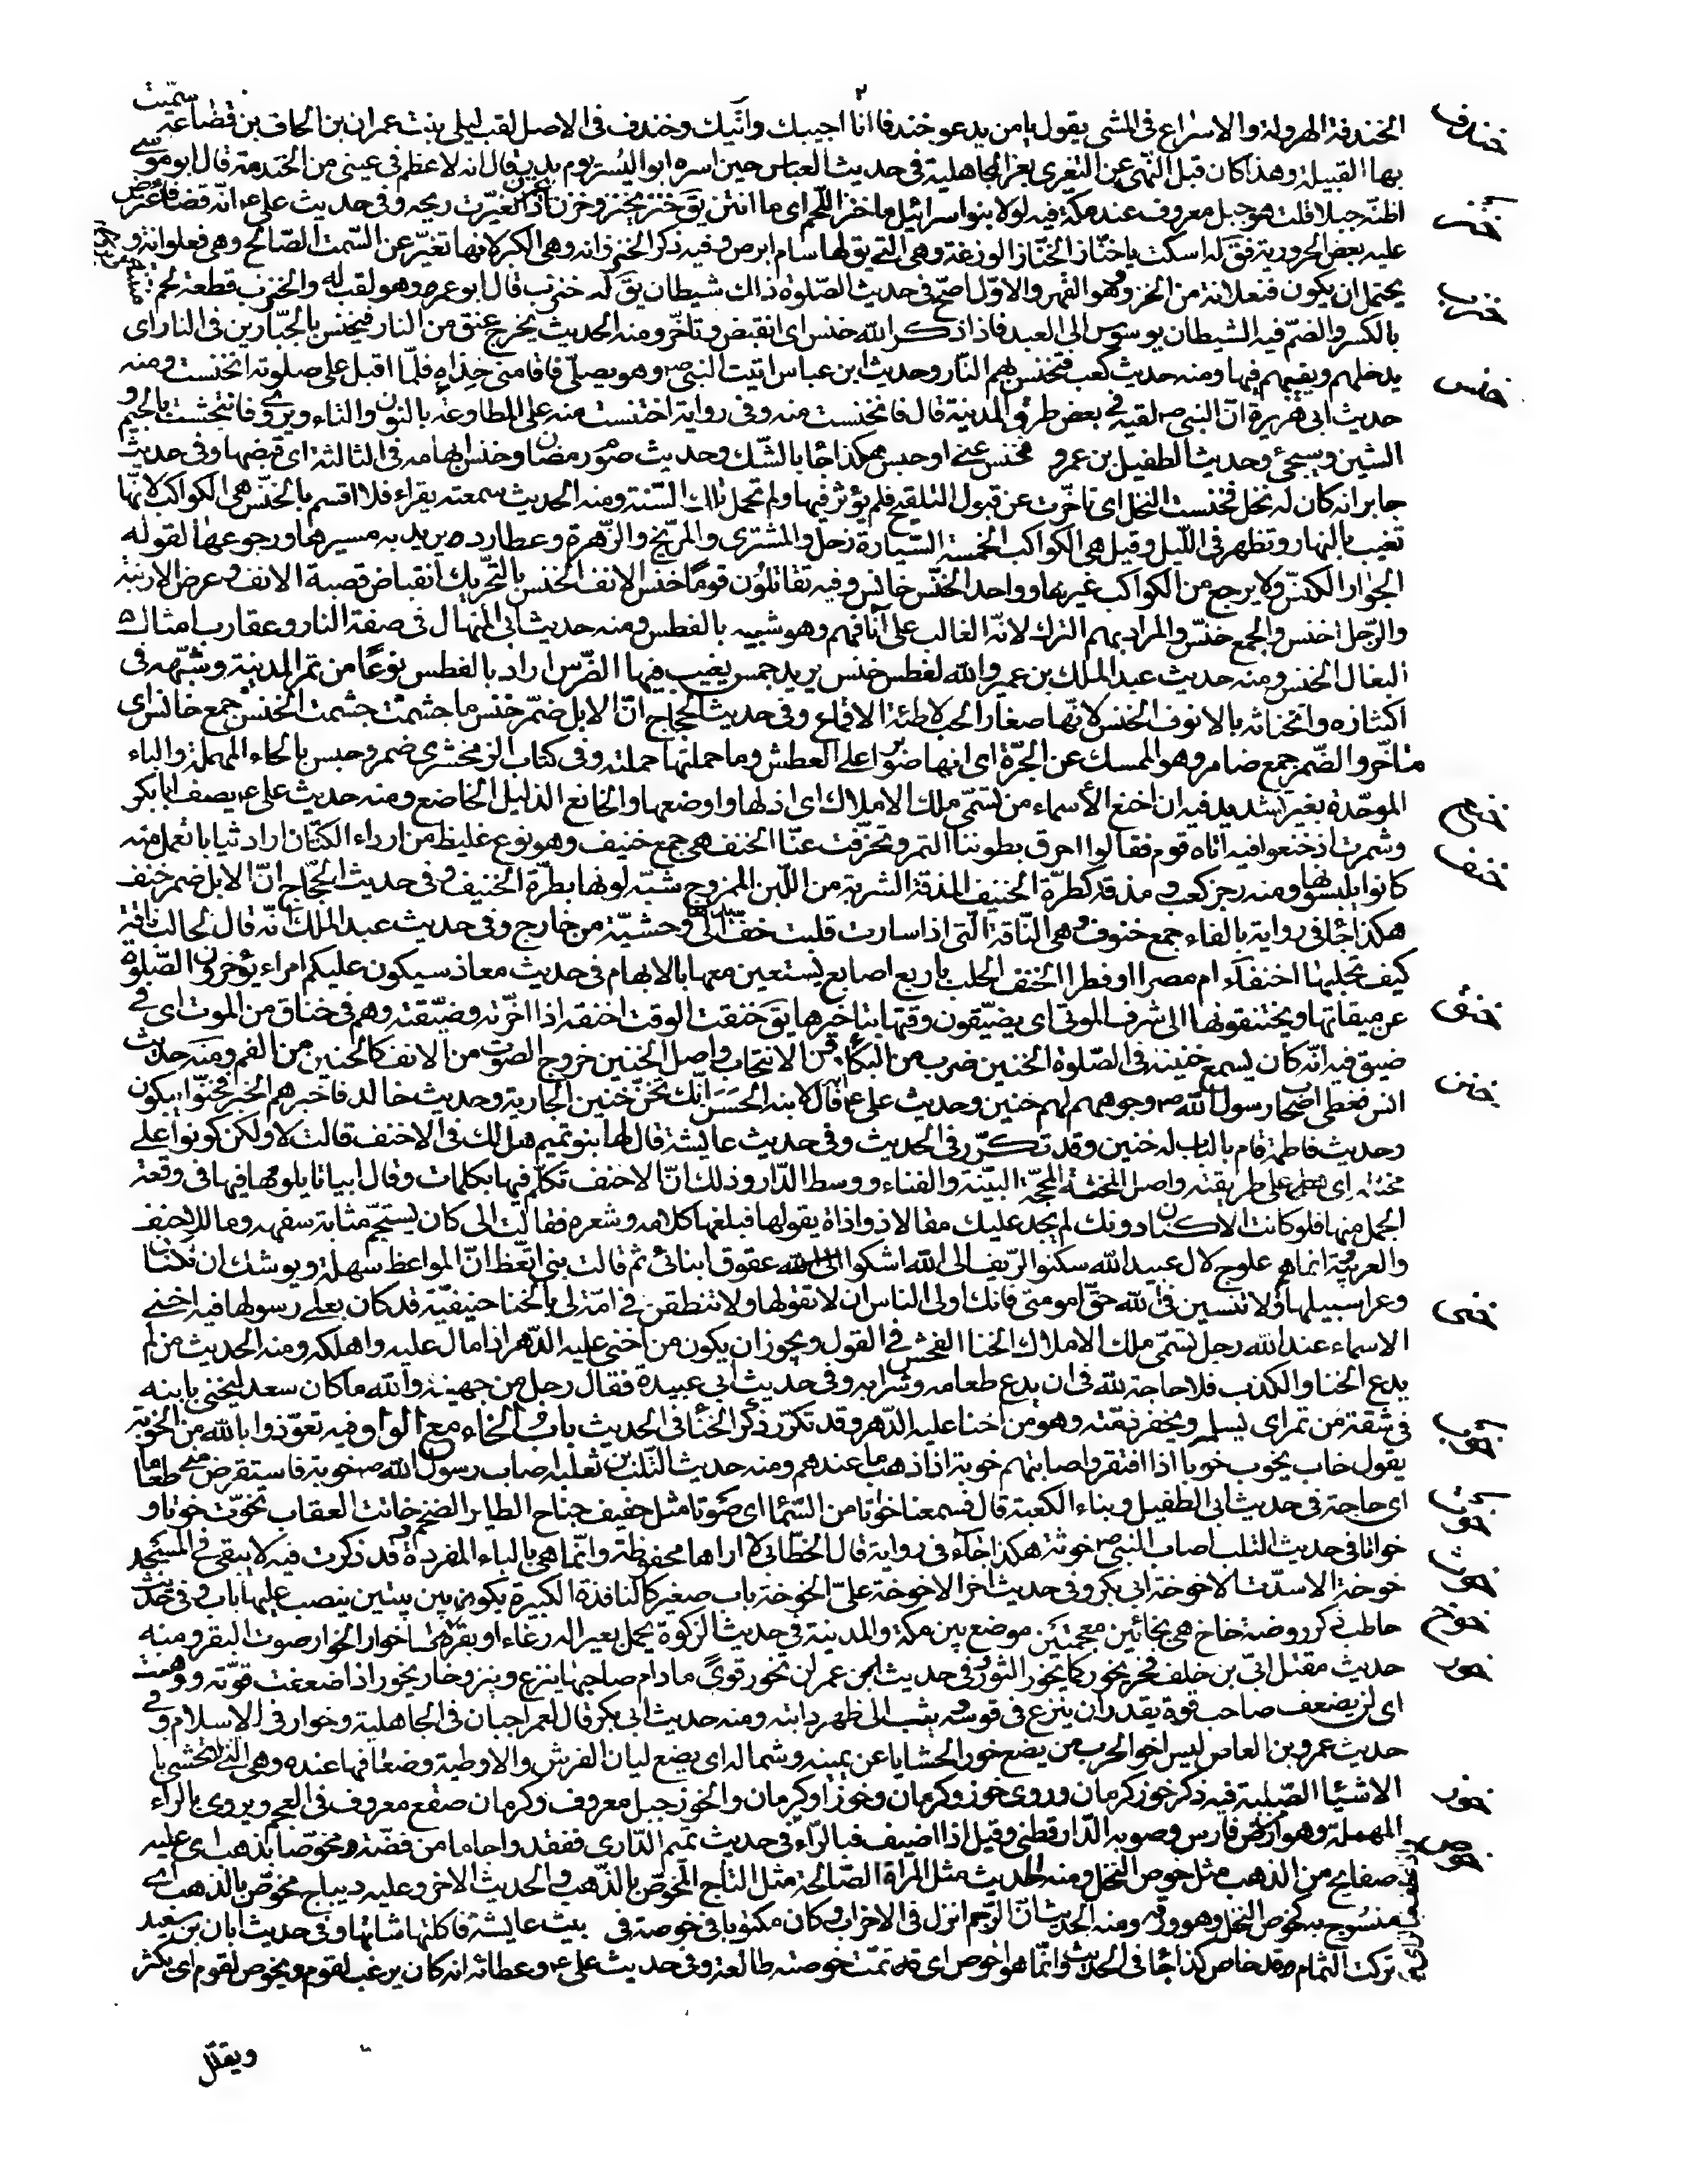 الخندفة الهرولة والاسراع فى المشى يقول يا من يدعو خندفا انا اجيبك واتيك وخندف فى الاصل لقب ليلى بنت عمران بن الحاف بن قضاعة سمّيت
بها القبيلة وهذا كان قبل النهى عن التعزى بعزا الجاهلية فى حديث العباس حين اسره ابو اليسر يوم بدر قال انه لاعظم فى عينى من الخندمة قال ابو موسى
اظنّه جبلا قلت هو جبل معروف عند مكة فيه لولا بنو اسرائيل ما خنز اللحم اى ما انتن يق خنز يخنز وخزن يخزن اذا تغيّرت ريحه وفى حديث على ع انّه قضا فاعترض
عليه بعض الحرورية فق له اسكت يا خنّاز الخنّاز الوزغة وهى التى يق لها سام ابرص وفيه ذكر الخنزوانه وهى الكبر لانها تغيّر عن السّمت الصّالح وهى فعلوانة و
يحتمل ان يكون فنعلانة من الخزو وهو القهر والاوّل اصحّ فى حديث الصّلوة ذاك شيطان يق له خنزب قال ابو عمرو وهو لقب له والخنزب قطعة لحم
بالكسر والضمّ فيه الشيطان يوسوس الى العبد فاذا ذكر الله خنس اى انقبض وتاخّر ومنه الحديث يخرج عنق من النار فيخنس بالجبّارين فى النار اى
يدخلهم ويغيبهم فيها ومنه حديث كعب فتخنس بهم النّار وحديث ابن عباس اتيت النبى ص وهو يصلّى فاقامنى حذاه فلمّا اقبل على صلوته انخنست ومنه
حديث ابى هريرة انّ النبى ص لقيه فى بعض طرق المدينة قال فانخنست منه وفى رواية اختنست منه على المطاوعة بالنون والتاء ويروى فانتجشت بالجيم و
الشين وسيجئ وحديث الطفيل بن عمرو فخنس عنى او حبس هكذا جا بالشّك وحديث صوم رمضان وخنس ابهامه فى الثالثة اى قبضها وفى حديث
جابر انه كان له نخل فخنست النخل اى تاخّرت عن قبول التلقيح فلم يؤثر فيها ولم تحمل تلك السّنة ومنه الحديث سمعته يقراء فلا اقسم بالخنّس هى الكواكب لانّها
تغيب بالنهار وتظهر فى اللّيل وقيل هى الكواكب الخمسة السّيارة زحل والمشترى والمرّيخ والزّهرة وعطارد يريد به مسيرها ورجوعها لقوله
الجوار الكنّس ولا يرجع من الكواكب غيرها وواحد الخنّس خانس وفيه تقاتلون قومًا خنس الانف الخنس بالتّحريك انقباض قصبة الانف وعرض الارنبة
والرّجل اخنس والجمع خنس والمراد بهم الترك لانّه الغالب على آنافهم وهو شبيه بالفطس ومنه حديث ابى المنهال فى صفة النار وعقارب امثال
البغال الخنس ومنه حديث عبد الملك بن عمير والله لفطس خنس بزبد جمس يغيب فيها الضّرس اراد بالفطس نوعًا من تمر المدينة وشبّهه فى
اكتنازه وانحنائه بالانوف الخنس لانّها صغار الحب لاطئة الاقماع وفى حديث الحجّاج انّ الابل ضمّر خنس ما جشمت جشمت الخنس جمع خانس اى
متاخّر والضّمر جمع ضامر وهو الممسك عن الجرّة اى انها صوابر على العطش وما حملتها حملته وفى كتاب الزمخشرى ضمر وحبس بالحاء المهملة والباء
الموحّدة بغير تشديد فيه ان اخنع الأسماء من تسمّى ملك الاملاك اى اذلها واوضعها والخانع الذليل الخاضع ومنه حديث على ع يصف ابا بكر
وشمرت اذ خنعوا فيه اتاه قوم فقالوا احرق بطوننا التمر وتخرّقت عنّا الخنف هى جمع خنيف وهو نوع غليظ من ارداء الكتّان اراد ثيابا تعمل منه
كانوا يلبسونها ومنه رجز كعب و مذقة كطرّة الخنيف المذقة الشربة من اللّبن الممزوج شبّه لونها بطرّة الخنيف وفى حديث الحجّاج انّ الابل ضمر خنف
هكذا جا فى رواية بالفاء جمع خنوف وهى النّاقة التى اذا سارت قلبت خفّ يدها الى وحشيّه من خارج وفى حديث عبد الملك انّه قال لحالب ناقة
كيف تحلبها اخنفا ام مصرا او فطرا الخنف الحلب باربع اصابع يستعين معها بالابهام فى حديث معاذ سيكون عليكم امراء يؤخرون الصّلوة
عن ميقاتها ويختنقونها الى شرف الموتى اى يضيّقون وقتها بتاخيرها يق خنقت الوقت اخنقه اذا اخّرته وضيّقته وهم فى خناق من الموت اى فى
ضيق فيه انّه كان يسمع خنينه فى الصّلوة الخنين ضرب من البكاء دون الانتحاب واصل الخنين خروج الصّوت من الانف كالحنين من الفم ومنه حديث
انس فغطى اصحاب رسول الله ص وجوههم لهم خنين وحديث على ع انه قال لابنه الحسن انّك تخنّ خنين الجارية وحديث خالد فاخبرهم الخبر فخنّوا يبكون
وحديث فاطمة قام بالباب له خنين وقد تكرّر فى الحديث وفى حديث عايشة قال لها بنو تميم هل لك فى الاحنف قالت لا ولكن كونوا على
مخنته اى طريقته واصل المخنّة المحجّة البيّنة والفناء ووسط الدّار وذلك انّ الاحنف تكلّم فيها بكلمات وقال ابياتا يلومها فيها فى وقعة
الجمل منها فلو كانت الاكنان دونك لم يجد عليك مقالا ذو اذاة يقولها فبلغها كلامه وشعره فقالت الى كان يستجمّ مثابة سفهه وما للاحنف
والعربيّة انما هم علوج لال عبيد الله سكنوا الرّيف الى الله اشكوا عقوق ابنائى ثم قالت بنىّ اتّعظ انّ المواعظ سهلة ويوشك ان تكتان
وعرا سبيلها ولا تنسين فى الله حقّ امومتى فانك اولى الناس ان لا تقولها ولا تنطقن فى امّة لى بالخنا حنيفيّة قد كان بعلى رسولها فيه اخنى
الاسماء عند الله رجل تسمّى ملك الاملاك الخنا الفحش فى القول ويجوز ان يكون من اخنى عليه الدّهر اذا مال عليه واهلكه ومنه الحديث من لم
يدع الخنا والكذب فلا حاجة لله فى ان يدع طعامه وشرابه وفى حديث ابى عبيدة فقال رجل من جهينة والله ما كان سعد ليخنى بابنه
فى شقة من تمر اى يسلمه ويخفر ذمّته وهو من اخنا عليه الدّهر وقد تكرّر ذكر الخنا فى الحديث باب الخاء مع الواو فيه تعوّذوا بالله من الخوبة
يقول خاب يخوب خوبا اذا افتقر واصابتهم خوبة اذا ذهب ما عندهم ومنه حديث التّلب بن ثعلبة اصاب رسول الله ص خوبة فاستقرض منى طعاما
اى حاجة فى حديث ابى الطفيل وبناء الكعبة قال فسمعنا خواتا من السّماء اى صوتا مثل حفيف جناح الطاير الضخم خاتت العقاب تخوت خوتا و
خواتا فى حديث التلب اصاب النبى ص خوثة هكذا جاء فى رواية قال الخطّابى لا اراها محفوظة وانّما هى بالباء المفردة وقد ذكرت فيه لا يبقى فى المسجد
خوخة الا سدّت الا خوخة ابى بكر وفى حديث اخر الا خوخة علىّ الخوخة باب صغير كالنافذة الكبيرة يكون بين بيتين ينصب عليها باب وفى حديث
حاطب ذكر روضة خاخ هى بخائين معجمتين موضع بين مكة والمدينة فى حديث الزكوة يحمل بعيرا له رغاء او بقرة لها خوار الخوار صوت البقر ومنه
حديث مقتل ابىّ بن خلف فخر يخور كما يخور الثّور وفى حديث ابن عمر لن تخور قوى ما دام صاحبها ينزع وينزو خار يخور اذا ضعفت قوّته ووهنت
اى لن يضعف صاحب قوة يقدر ان ينزع فى قوسه ويثب الى ظهر دابته ومنه حديث ابى بكر قال لعمر اجبان فى الجاهلية وخوار فى الاسلام وفى
حديث عمرو بن العاص ليس اخو الحرب من يضع خور الحشايا عن يمينه وشماله اى يضع ليان الفرش والاوطية وضعافها عنده وهى التى لا تحشى با
الاشيا الصّلبة فيه ذكر خوز كرمان وروى خوز وكرمان وخوزا وكرمان والخوز جبل معروف وكرمان صقع معروف فى العجم ويروى بالرّاء
المهملة وهو من ارض فارس وصوبه الدّارقطنى وقيل اذا اضيف فبالرّاء فى حديث تميم الدّارى ففقدوا جاما من فضّة مخوّصا بذهب اى عليه
صفايح من الذهب مثل خوص النخل ومنه الحديث مثل المراة الصّالحة مثل التاج المخوّص بالذّهب والحديث الاخر وعليه ديباج مخوّص بالذهب اى
منسوج به كخوص النخل وهو ورقه ومنه الحديث انّ الرّجم انزل فى الاحزاب وكان مكتوبا فى خوصة فى بيت عايشة فاكلتها شاتها وفى حديث ابان بن سعيد
تركت الثمام قد خاص كذا جا فى الحديث وانّما هو اخوص اى تمّت خوصته طالعة وفى حديث على ع وعطائه انه كان يرغب لقوم ويخوص لقوم اى يكثر
ويقلّل
خندف
خنز
خنزب
خنس
خنع
خنف
خنق
خنن
خنى
خوب
خوت
خوث
خوخ
خور
خوز
خوص